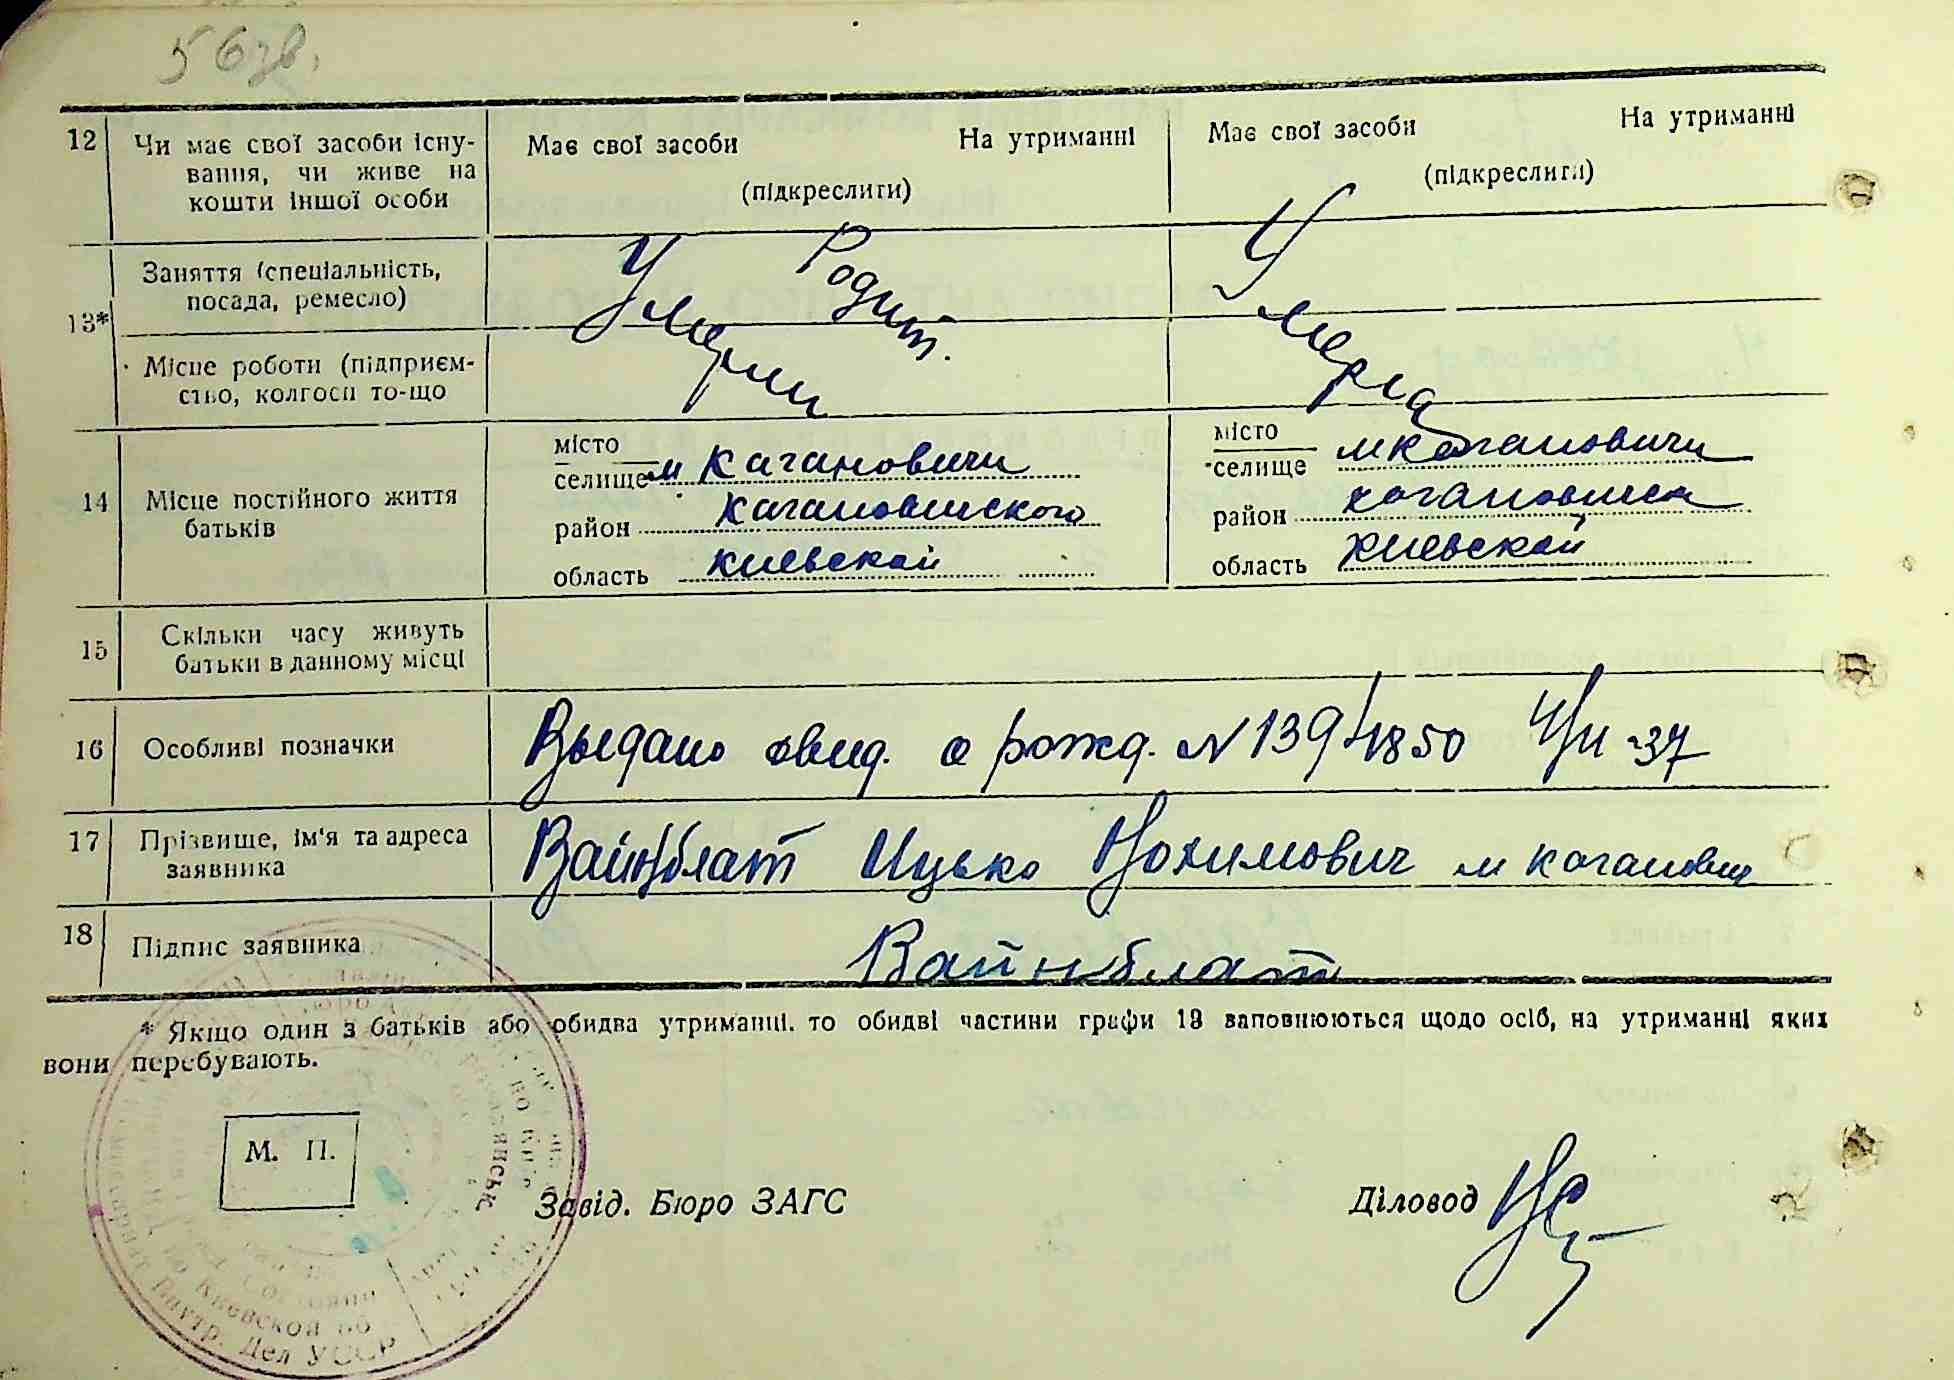 56зв.
12 Чи має свої засоби існу-
вання, чи живе на
кошти іншої особи
Має свої засоби На утриманні
(підкреслити)
Має свої засоби На утриманні
(підкреслити)
13*
Заняття (спеціальність,
посада, ремесло)
Місце роботи (підприєм-
ство, колгосп то-що
Родит.
Умерли
Умерла
14 Місце постійного життя
батьків
місто
селище м Кагановичи
район Кагановишского
область Киевской
місто
селище м Кагановичи
район
область Киевской
15 Скільки часу живуть
батьки в данному місці
16 Особливі позначки
Выдано свид. о рожд. N 139/1850 4/II-37
17 Прізвище, ім'я та адреса
заявника
Вайнблат Ицько Нохимович м Каганович
18 Підпис заявника
Вайнблат
* Якщо один з батьків або обидва утриманні. то обидві частини графи 13 заповнюються щодо осіб, на утриманні яких
вони перебувають.
М. П.
Завід. Бюро ЗАГС
Діловод
по Киевской об
Внутр. Дел УССР